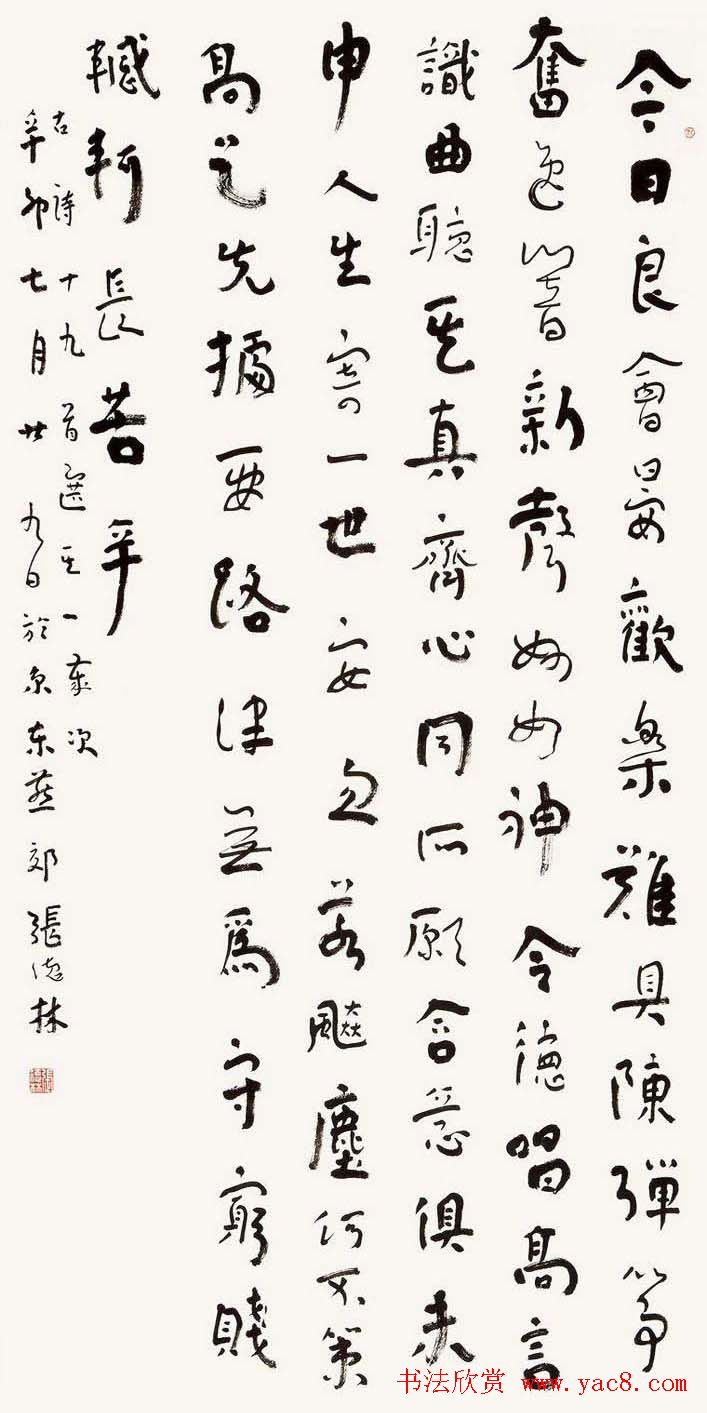 今日良會晏歡樂難具陳彈箏
奮逸響新聲妙如神令德唱高言
識曲聽其真齊心同所願含意俱未
申人生寄一世安忽若飆塵何不策
高足先據要路津無爲守窮賤
轗軻長苦辛
古詩十九首選其一歲次
辛卯七月廿九日於京东燕郊張德林
书法欣赏 www.yac8.com